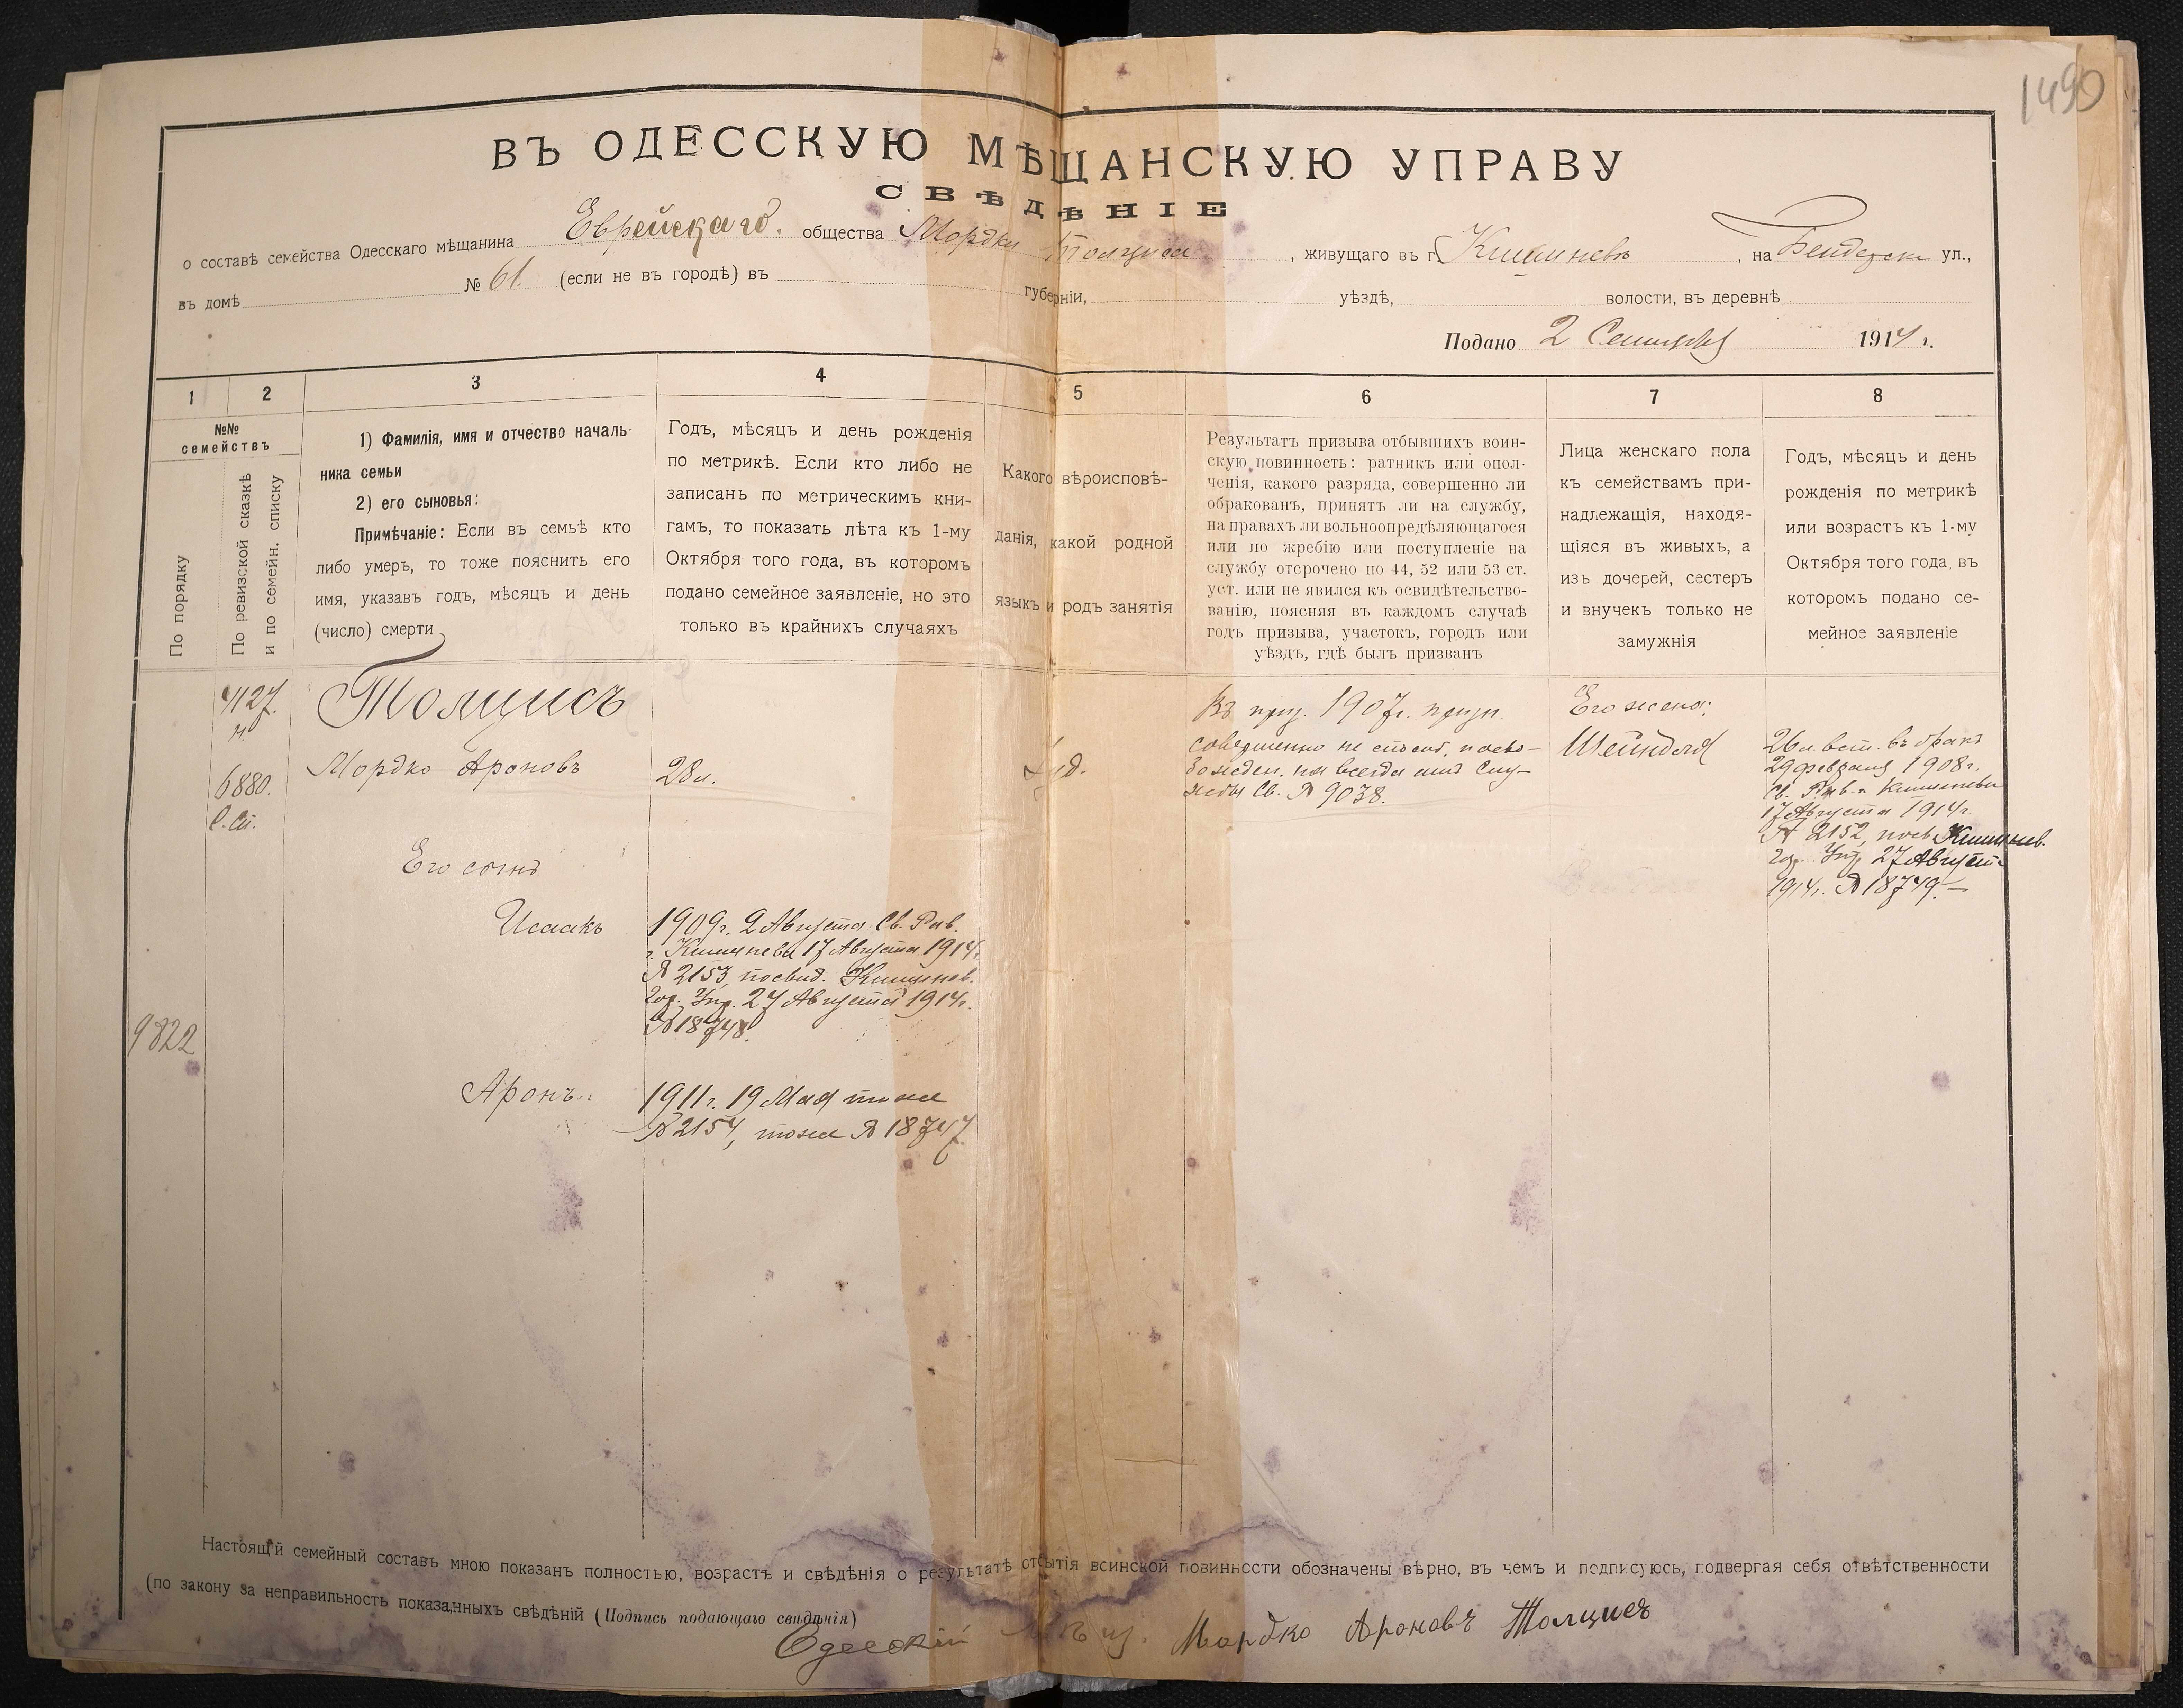 1490
ВЪ ОДЕССКУЮ МѢЩАНСКУЮ УПРАВУ
СВѢДѢНІЕ
о составѣ семейства Одесскаго мѣщанина Еврейскаго общества Мордки Толциса, живущаго въ г. Кишиневѣ, на Бендерск ул.,
въ домѣ № 61. (если не въ городѣ) въ губерніи, уѣздѣ, волости, въ деревнѣ
Подано 2 Сентября 1914 г.
1 2 3 4 5 6 7 8
№№
семействъ
По порядку
По ревизской сказкѣ
и по семейн. списку
1) Фамилія, имя и отчество началь-
ника семьи
2) его сыновья:
Примѣчаніе: Если въ семьѣ кто
либо умеръ, то тоже пояснить его
имя, указавъ годъ, мѣсяцъ и день
(число) смерти
Годъ, мѣсяцъ и день рожденія
по метрикѣ. Если кто либо не
записанъ по метрическимъ кни-
гамъ, то показать лѣта къ 1-му
Октября того года, въ которомъ
подано семейное заявленіе, но это
только въ крайнихъ случаяхъ
Какого вѣроисповѣ-
данія, какой родной
языкъ и родъ занятія
Результатъ призыва отбывшихъ воин-
скую повинность: ратникъ или опол-
ченія, какого разряда, совершенно ли
обракованъ, принятъ ли на службу,
на правахъ ли вольноопредѣляющагося
или по жребію или поступленіе на
службу отсрочено по 44, 52 или 53 ст.
уст. или не явился къ освидѣтельство-
ванію, поясняя въ каждомъ случаѣ
годъ призыва, участокъ, городъ или
уѣздъ, гдѣ былъ призванъ
Лица женскаго пола
къ семействамъ при-
надлежащія, находя-
щіяся въ живыхъ, а
изъ дочерей, сестеръ
и внучекъ только не
замужнія
Годъ, мѣсяцъ и день
рожденія по метрикѣ
или возрастъ къ 1-му
Октября того года, въ
которомъ подано се-
мейное заявленіе
4127.
н.
6880.
с. сп.
9822
Толцисъ
Мордко Ароновъ
28 л.
Іуд.
Въ приз. 1907 г. призн.
совершенно не способ. и осво-
божден. на всегда отъ слу-
жбы Св. № 9038.
Его жена:
Шейндля
26 л. вст. въ бракъ
29 февраля 1908 г.
Св. Рав. г. Кишинева
17 Августа 1914 г.
№ 2152, посв. Кишинев.
Гор. Упр. 27 Августа
1914 г. № 18749.—
Его сынъ
Исаакъ
1909 г. 2 Августа Св. Рав.
г. Кишинева 17 Августа 1914 г.
№ 2153, посвид. Кишинев.
Гор. Упр. 27 Августа 1914 г.
№ 18748.
Аронъ
1911 г. 19 Мая тоже
№ 2154, тоже № 18747.
Настоящій семейный составъ мною показанъ полностью, возрастъ и свѣдѣнія о результатѣ отбытія воинской повинности обозначены вѣрно, въ чемъ и подписуюсь, подвергая себя отвѣтственности
(по закону за неправильность показанныхъ свѣдѣній (Подпись подающаго свидѣнія)
Одесскій Мѣщ. Мордко Ароновъ Толцисъ